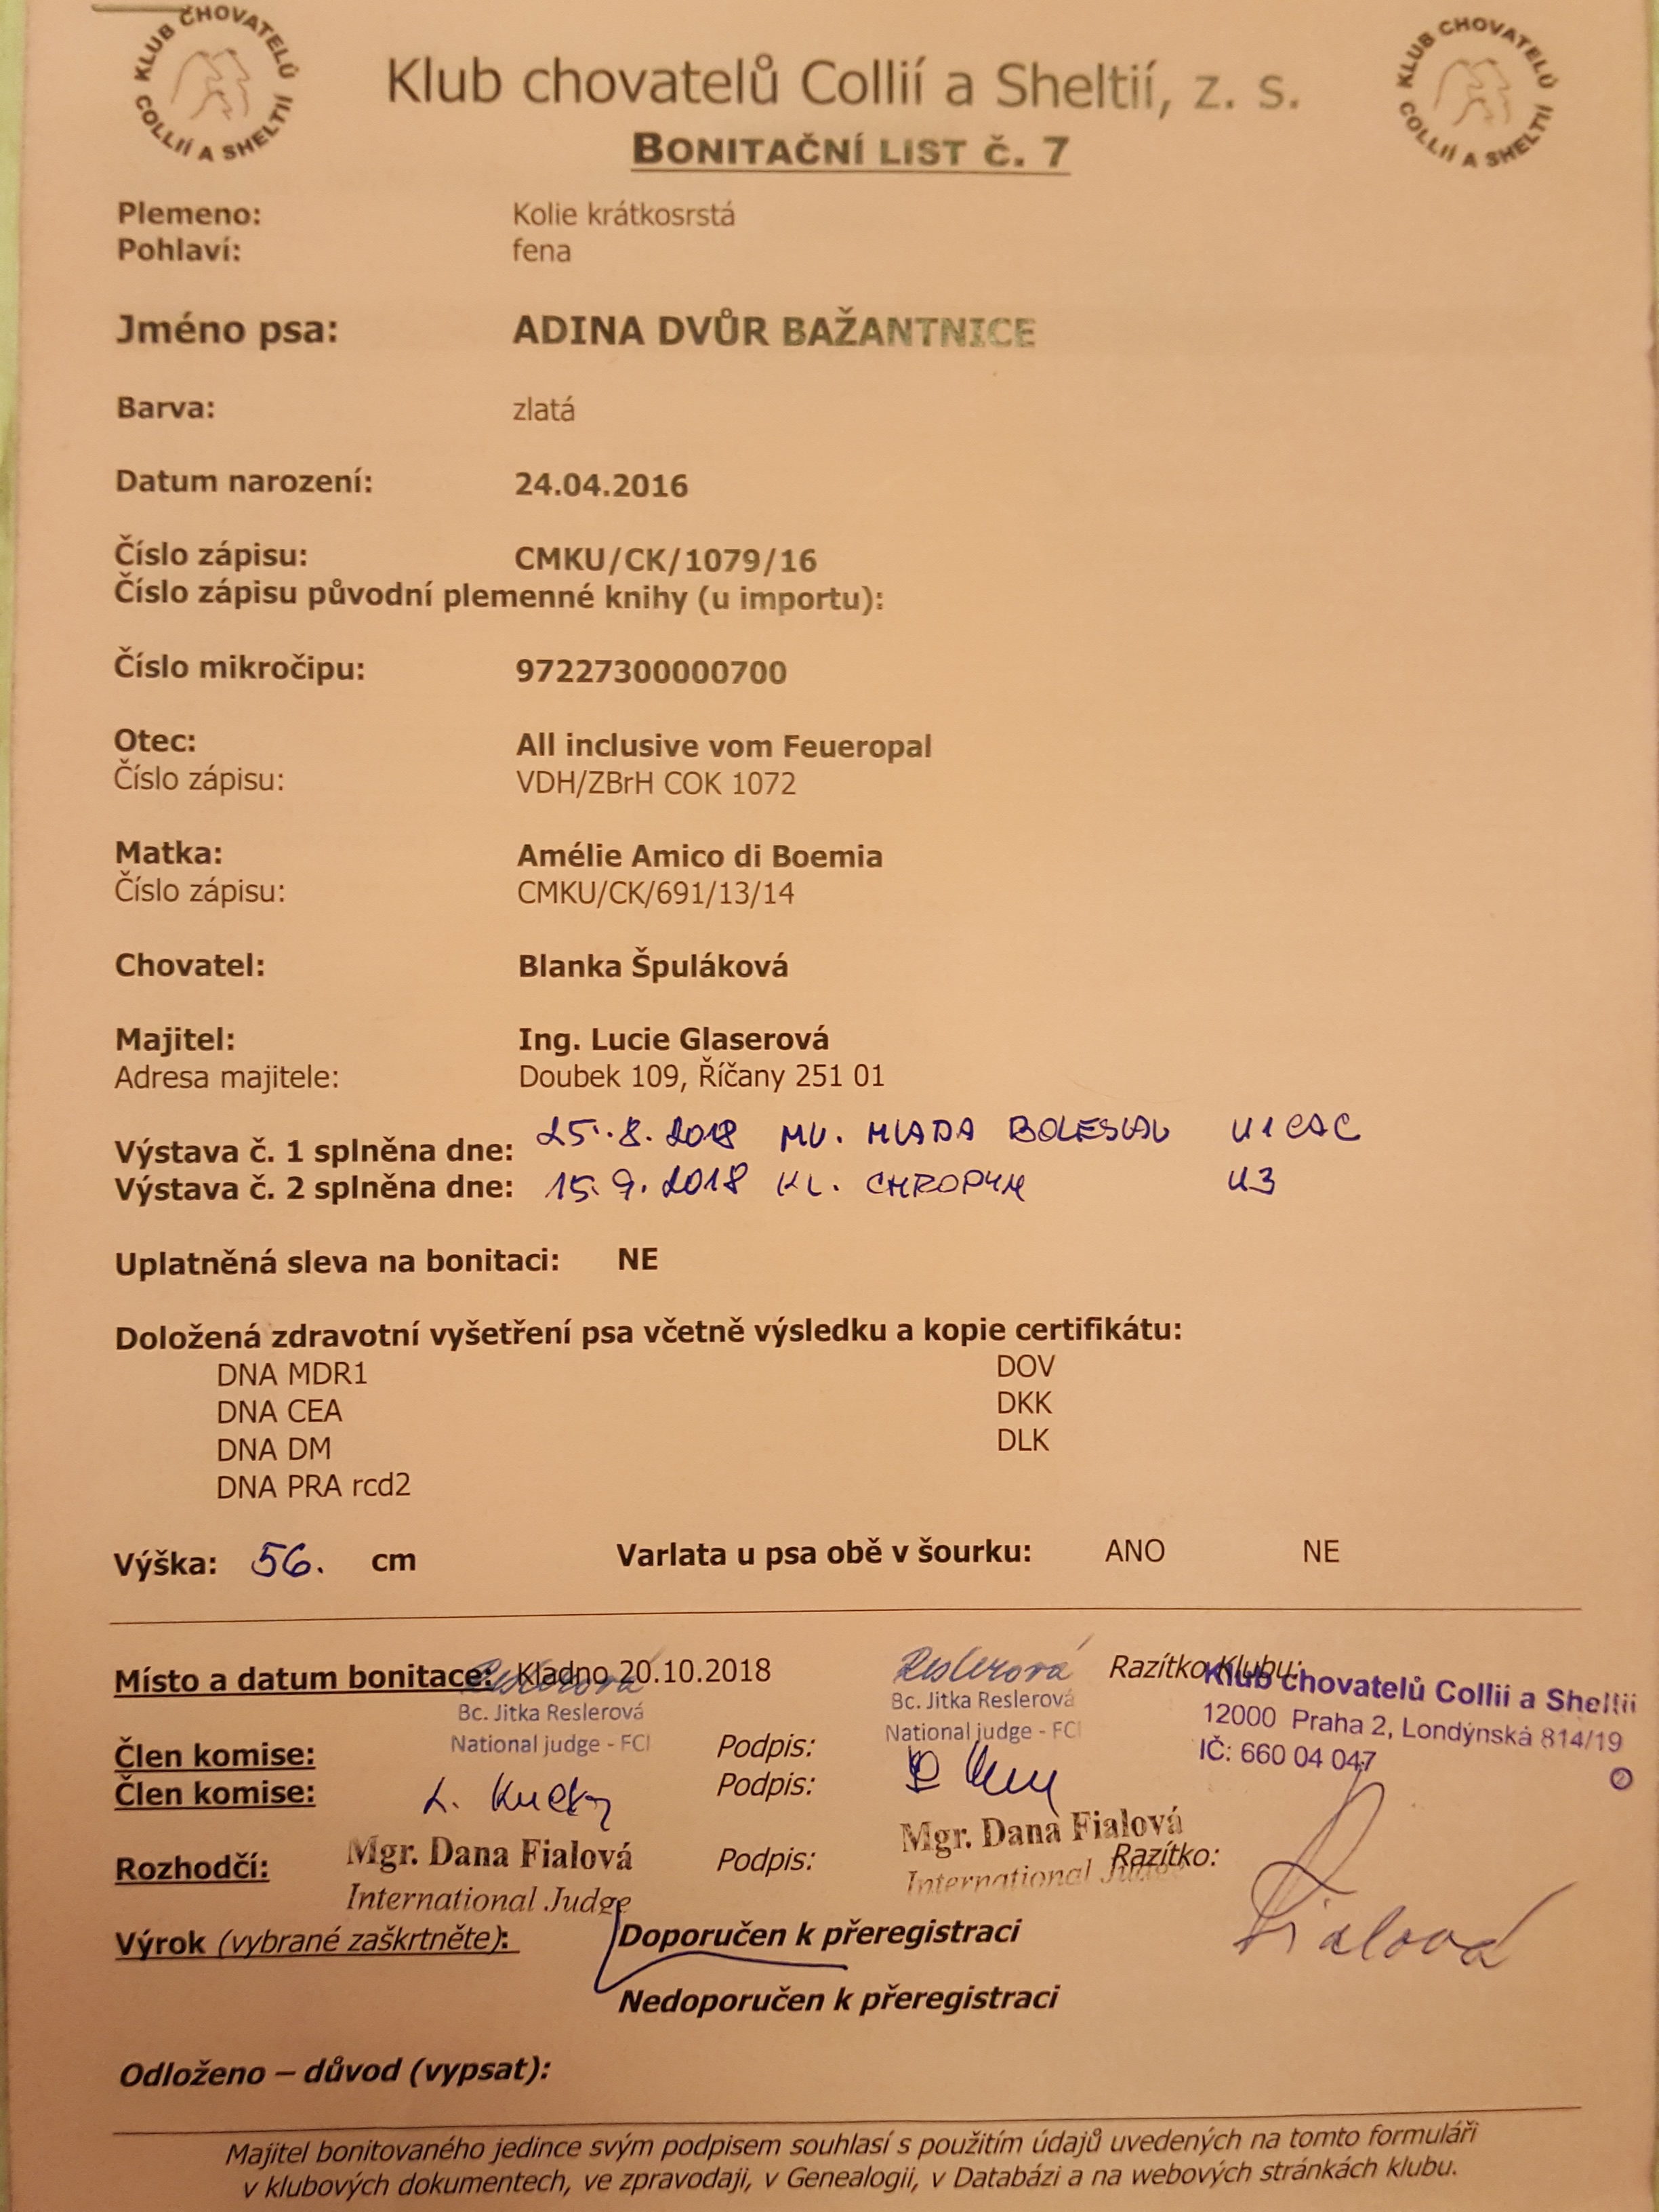 KLUB CHOVATELŮ COLLIÍ A SHELTIÍ
KLUB CHOVATELŮ COLLIÍ A SHELTIÍ
Klub chovatelů Collií a Sheltií, z. s.
BONITAČNÍ LIST Č. 7
Plemeno: Kolie krátkosrstá
Pohlaví: fena
Jméno psa: ADINA DVŮR BAŽANTNICE
Barva: zlatá
Datum narození: 24.04.2016
Číslo zápisu: CMKU/CK/1079/16
Číslo zápisu původní plemenné knihy (u importu):
Číslo mikročipu: 97227300000700
Otec: All inclusive vom Feueropal
Číslo zápisu: VDH/ZBrH COK 1072
Matka: Amélie Amico di Boemia
Číslo zápisu: CMKU/CK/691/13/14
Chovatel: Blanka Špuláková
Majitel: Ing. Lucie Glaserová
Adresa majitele: Doubek 109, Říčany 251 01
Výstava č. 1 splněna dne: 25.8.2018 MV. MLADA BOLESLAV V1 CAC
Výstava č. 2 splněna dne: 15.9.2018 KL. CHROPYN V3
Uplatněná sleva na bonitaci: NE
Doložená zdravotní vyšetření psa včetně výsledku a kopie certifikátu:
DNA MDR1 DOV
DNA CEA DKK
DNA DM DLK
DNA PRA rcd2
Výška: 56. cm Varlata u psa obě v šourku: ANO NE
Místo a datum bonitace: Kladno 20.10.2018 Reslerová Razítko Klubu:
Reslerová
Klub chovatelů Collii a Sheltii
12000 Praha 2, Londýnská 814/19
IČ: 660 04 047
Bc. Jitka Reslerová Bc. Jitka Reslerová
National judge - FCI National judge - FCI
Člen komise: Podpis:
Člen komise: L. Podpis:
Rozhodčí: Mgr. Dana Fialová Podpis: Mgr. Dana Fialová Razítko:
International Judge International Judge
Fialová
Výrok (vybrané zaškrtněte): Doporučen k přeregistraci
Nedoporučen k přeregistraci
Odloženo – důvod (vypsat):
Majitel bonitovaného jedince svým podpisem souhlasí s použitím údajů uvedených na tomto formuláři
v klubových dokumentech, ve zpravodaji, v Genealogii, v Databázi a na webových stránkách klubu.